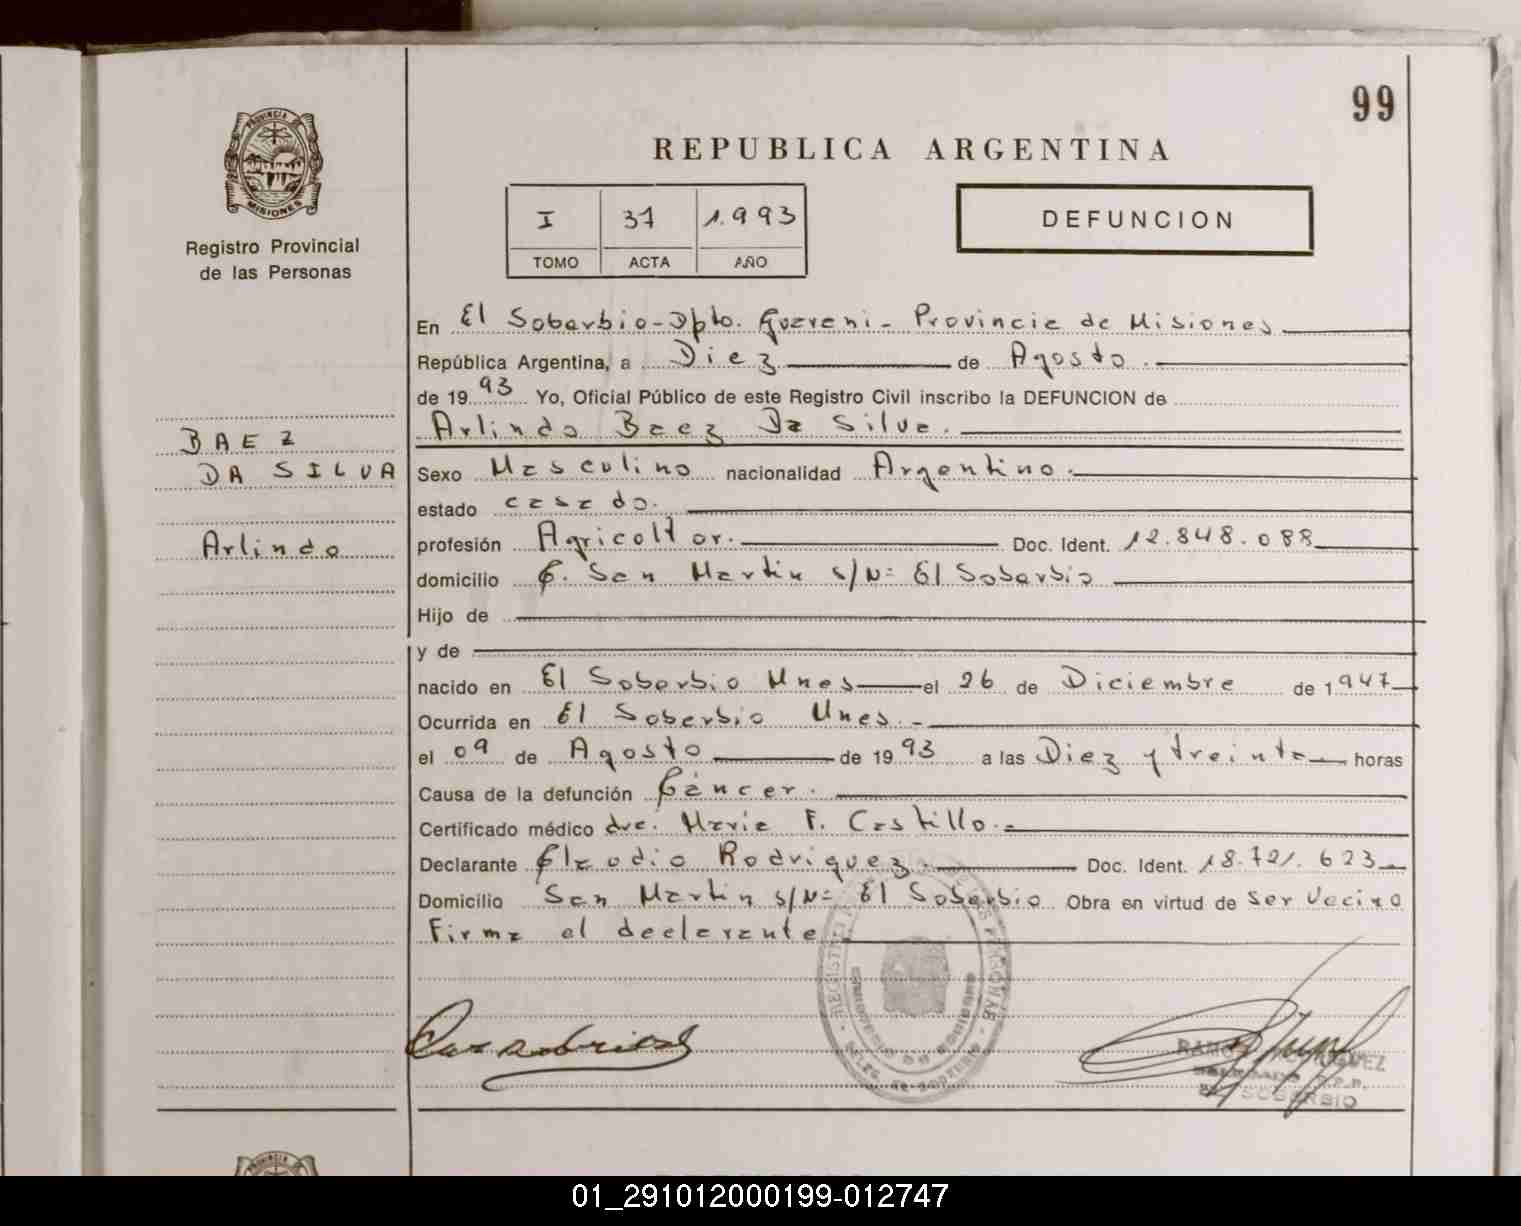 99
PROVINCIA DE
MISIONES
Registro Provincial
de las Personas
REPUBLICA ARGENTINA
I 31 1.993
TOMO ACTA AÑO
DEFUNCION
En El Soberbio - Dpto. Guarani - Provincia de Misiones
República Argentina, a Diez de Agosto.
de 1993 Yo, Oficial Público de este Registro Civil inscribo la DEFUNCION de
Arlindo Baez Da Silva.
BAEZ
DA SILVA
Arlindo
Sexo Masculino nacionalidad Argentino.
estado casado.
profesión Agricoltor. Doc. Ident. 12.848.088
domicilio C. San Martin s/Nº El Soberbio
Hijo de
y de
nacido en El Soberbio Mnes el 26 de Diciembre de 1947
Ocurrida en El Soberbio Mnes.-
el 09 de Agosto de 1993 a las Diez y treinta horas
Causa de la defunción Cáncer.
Certificado médico dra. Maria F. Castillo.-
Declarante Claudio Rodriguez. Doc. Ident. 18.721.623
Domicilio San Martin s/Nº El Soberbio Obra en virtud de ser Vecino
Firma el declarante
EL SOBERBIO
01_291012000199-012747